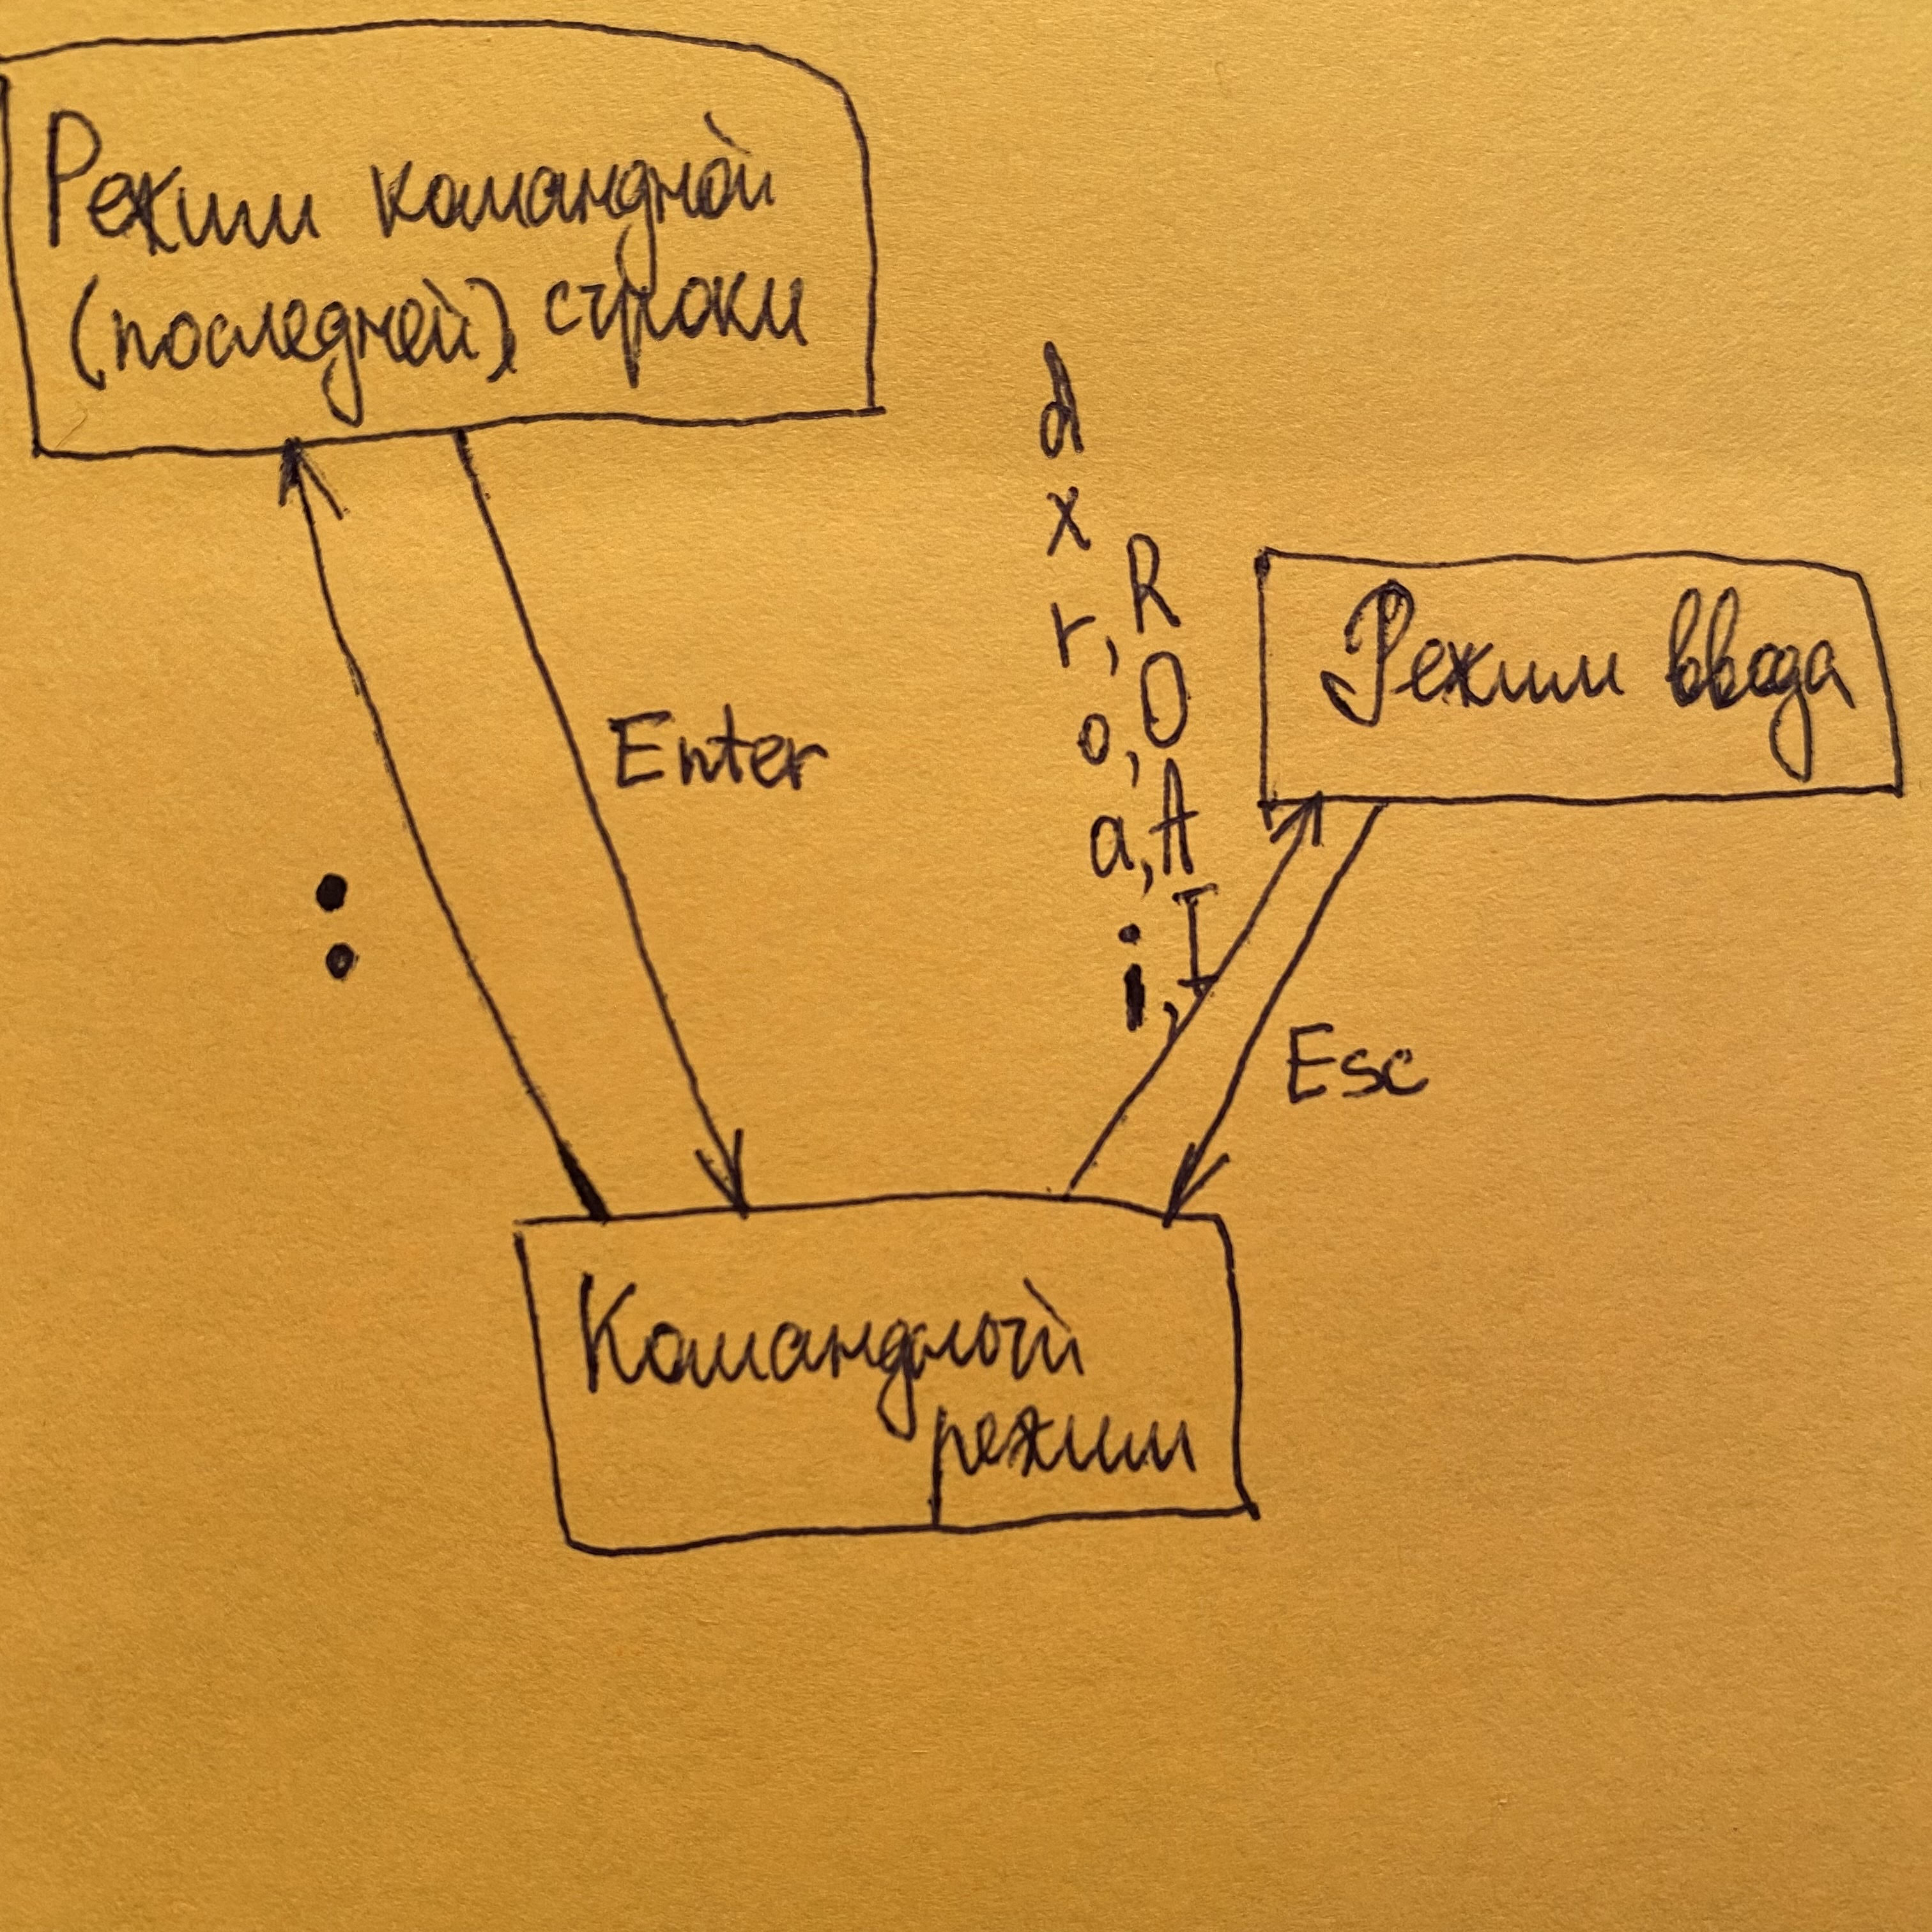 Режим командной
(последней) строки
d
x
r, R
o, O
a, A
i, I
Режим ввода
Enter
:
Esc
Командный
режим